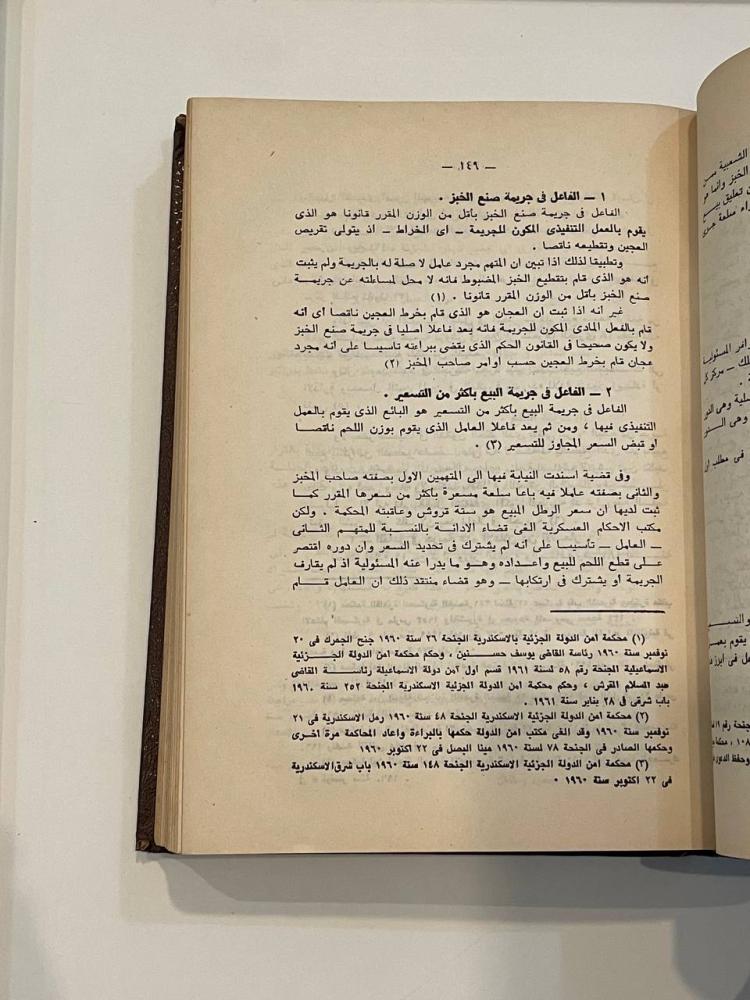 — ١٤٩ —
١ — الفاعل فى جريمة صنع الخبز .
الفاعل فى جريمة صنع الخبز بأقل من الوزن المقرر قانونا هو الذى
يقوم بالعمل التنفيذى المكون للجريمة — اى الخراط — اذ يتولى تقريص
العجين وتقطيعه ناقصا .
وتطبيقا لذلك اذا تبين ان المتهم مجرد عامل لا صلة له بالجريمة ولم يثبت
أنه هو الذى قام بتقطيع الخبز المضبوط فانه لا محل لمساءلته عن جريمة
صنع الخبز بأقل من الوزن المقرر قانونا . (١)
غير أنه اذا ثبت ان العجان هو الذى قام بخرط العجين ناقصا أى أنه
قام بالفعل المادى المكون للجريمة فانه يعد فاعلا اصليا فى جريمة صنع الخبز
ولا يكون صحيحا فى القانون الحكم الذى يقضى ببراءته تاسيسا على انه مجرد
عجان قام بخرط العجين حسب اوامر صاحب المخبز (٢)
٢ — الفاعل فى جريمة البيع باكثر من التسعير .
الفاعل فى جريمة البيع بأكثر من التسعير هو البائع الذى يقوم بالعمل
التنفيذى فيها ، ومن ثم يعد فاعلا العامل الذى يقوم بوزن اللحم ناقصا
او قبض السعر المجاوز للتسعير (٣) .
وفى قضية اسندت النيابة فيها الى المتهمين الاول بصفته صاحب المخبز
والثانى بصفته عاملا فيه باعا سلعة مسعرة بأكثر من سعرها المقرر كما
ثبت لديها ان سعر الرطل المبيع هو ستة قروش وعاقبته المحكمة . ولكن
مكتب الاحكام العسكرية الغى قضاء الادانة بالنسبة للمتهم الثانى
— العامل — تأسيسا على أنه لم يشترك فى تحديد السعر وان دوره اقتصر
على قطع اللحم للبيع واعداده وهو ما يدرا عنه المسئولية اذ لم يقارف
الجريمة أو يشترك فى ارتكابها — وهو قضاء منتقد ذلك ان العامل قام
(١) محكمة امن الدولة الجزئية بالاسكندرية الجنحة ٢٦ سنة ١٩٦٠ جنح الجمرك فى ٢٠
نوفمبر سنة ١٩٦٠ رئاسة القاضى يوسف حسنين ، وحكم محكمة امن الدولة الجزئية
الاسماعيلية الجنحة رقم ٥٨ لسنة ١٩٦١ قسم اول امن دولة الاسماعيلة رئاسة القاضى
عبد السلام المقرش ، وحكم محكمة امن الدولة الجزئية الاسكندرية الجنحة ٢٥٢ سنة ١٩٦٠
باب شرقى فى ٢٨ يناير سنة ١٩٦١ .
(٢) محكمة امن الدولة الجزئية الاسكندرية الجنحة ٤٨ سنة ١٩٦٠ رمل الاسكندرية فى ٢١
نوفمبر سنة ١٩٦٠ وقد الغى مكتب امن الدولة حكمها بالبراءة واعاد المحاكمة مرة اخرى
وحكمها الصادر فى الجنحة ٧٨ لسنة ١٩٦٠ مينا البصل فى ٢٢ اكتوبر ١٩٦٠
(٣) محكمة امن الدولة الجزئية الاسكندرية الجنحة ١٤٨ سنة ١٩٦٠ باب شرق الاسكندرية
فى ٢٢ اكتوبر سنة ١٩٦٠ .